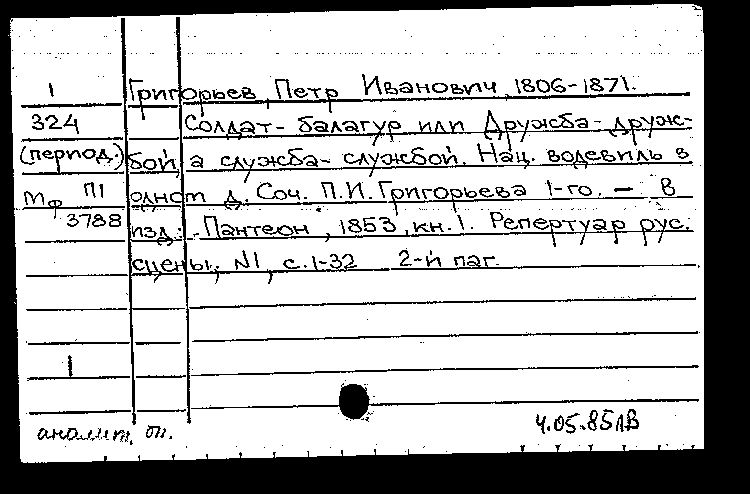 1 Григорьев, Петр Иванович, 1806-1871.
324 Солдат-балагур или Дружба-друж-
(период.) бой, а служба-службой. Нац. водевиль в
Мф П1 одном д. Соч. П.И. Григорьева 1-го. — В
3788 изд.: Пантеон, 1853, кн. 1. Репертуар рус.
сцены, N1, с. 1-32 2-й паг.
1
аналит. оп. 4.05.85 ЛВ